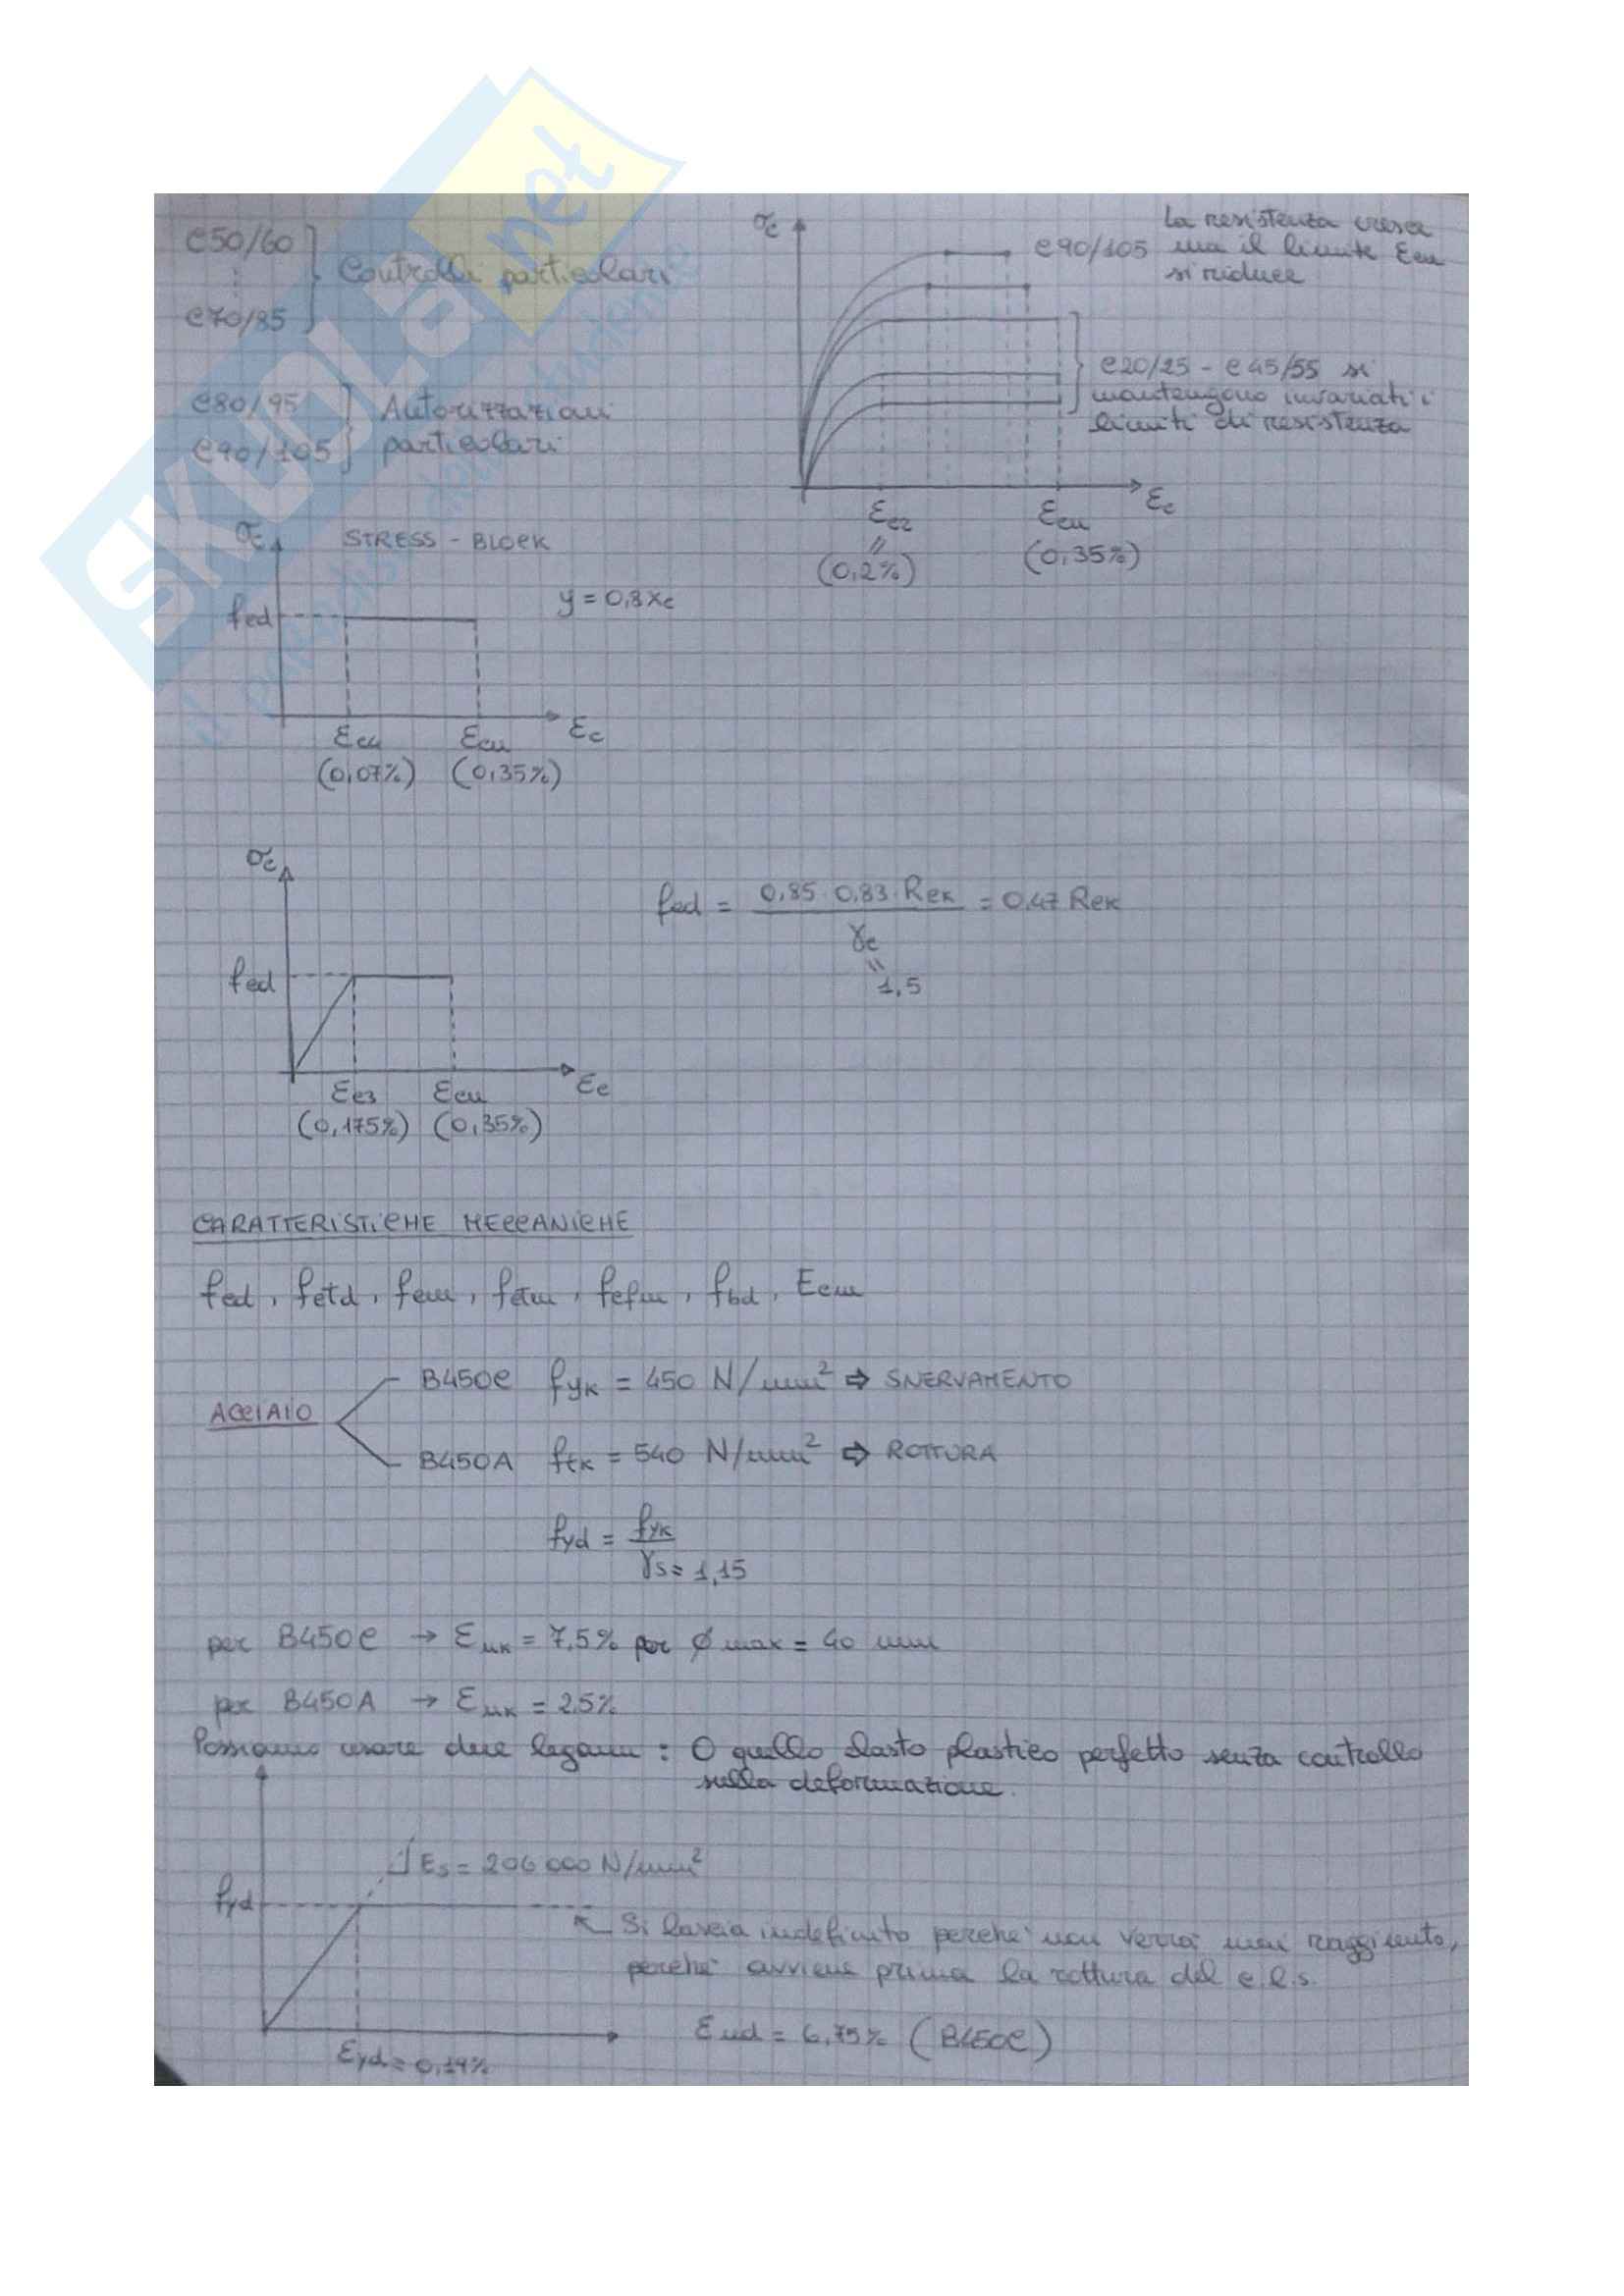 SKUOLA.net
il paradiso dello studente
C50/60
⋮
C70/85
Controlli particolari
C80/95
C90/105
Autorizzazioni
particolari
σc
C90/105
La resistenza cresce
ma il limite Ecu
si riduce
C20/25 - C45/55 si
mantengono invariati i
limiti di resistenza
Ec2
=
(0,2%)
Ecu
(0,35%)
Ec
σc
STRESS - BLOCK
fcd
y = 0,8xc
Ec4
(0,07%)
Ecu
(0,35%)
Ec
σc
fcd
Ec3
(0,175%)
Ecu
(0,35%)
Ec
fcd = 0,85 · 0,83 · Rck / γc = 0,47 Rck
=
1,5
CARATTERISTICHE MECCANICHE
fcd, fctd, fcm, fctm, fcfm, fbd, Ecm
ACCIAIO
B450C fyk = 450 N/mm² ⇒ SNERVAMENTO
B450A ftk = 540 N/mm² ⇒ ROTTURA
fyd = fyk / γs = 1,15
per B450C → Euk = 7,5% per φ max = 40 mm
per B450A → Euk = 2,5%
Possiamo usare due legami : O quello elasto plastico perfetto senza controllo
sulla deformazione.
Es = 206 000 N/mm²
fyd
Si lascia indefinito perché non verrà mai raggiunto,
perché avviene prima la rottura del c.l.s.
Eyd = 0,19%
Eud = 6,75% (B450C)